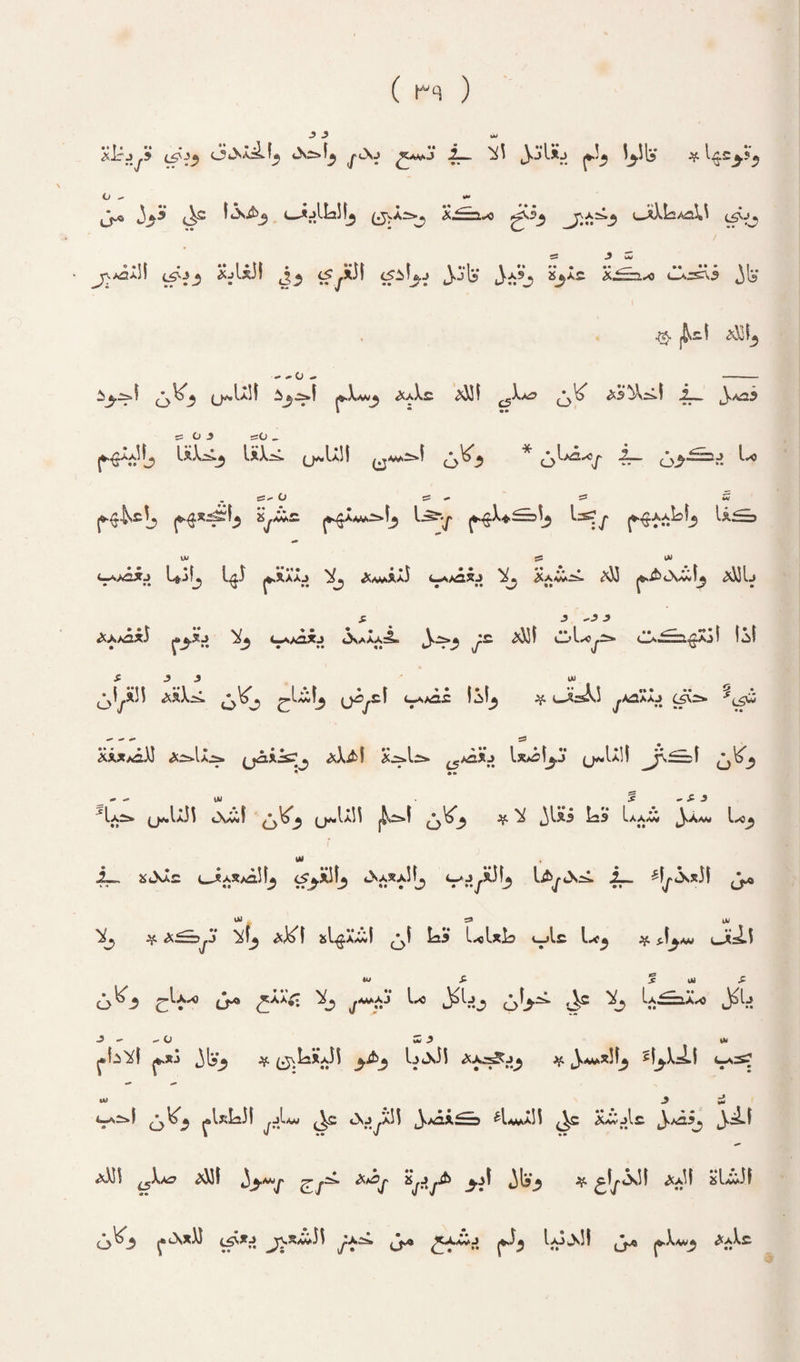 ( ٣٩ )
وقوعها * قالوا ولم يقاتل الّا في تسع بدر واحد والخندق وبني قريظة
وبني المصطلق وخيبر وفتح مكّة وحنين والطايف وهذا على قول من
قال فُتحت مكّة عنوة وقيل قاتل بوادي القرى وفي الغابة وبني النضير
والله أعلم
فصل في اخلاقه كان صلى الله عليه وسلم اجود الناس وكان اجود
ما يكون في رمضان * وكان احسن الناس خلقا وخلقا والينهم
كفّا واطيبهم ريحا واكملهم واحسنهم عشرة واشجعهم واعلمهم
بالله واشدّهم لله خشية ولا يغضب لنفسه ولا ينتقم لها وانّما يغضب
اذا انتهكت حرمات الله عز وجل فحينئذ يغضب ولا يقوم لغضبه
شيء حتى ينتصر للحقّ * واذا غضب أعرض واشاح وكان خلقه القران
وكان اكثر الناس تواضعا يقضي حاجة أهله ويخفض جناحه للضعفة
وما سيل شيا قط فقال لا * وكان احلم الناس وكان اشدّ الناس حياء
من العذراء في خدرها والقريب والبعيد والقوي والضعيف عنده في
الحقّ سواء * وما عاب طعاما قط أن اشتهاه اكله والّا تركه * ولا
يأكل متّكئا ولا على خوان ويأكل ما تيسّر ولا يمتنع من مباح وكان
يحبّ الحلواء والعسل * ويعجبه الدبّا وهو اليقطين * وقال نعم الادام
الخلّ وفضل عايشة على النساء كفضل الثريد على ساير الطعام وكان احبّ
الشاة اليه الذراع * وقال ابو هريرة رضه خرج رسول الله صلى الله
عليه وسلم من الدنيا ولم يشبع من خبز الشعير يعني للعدم وكان